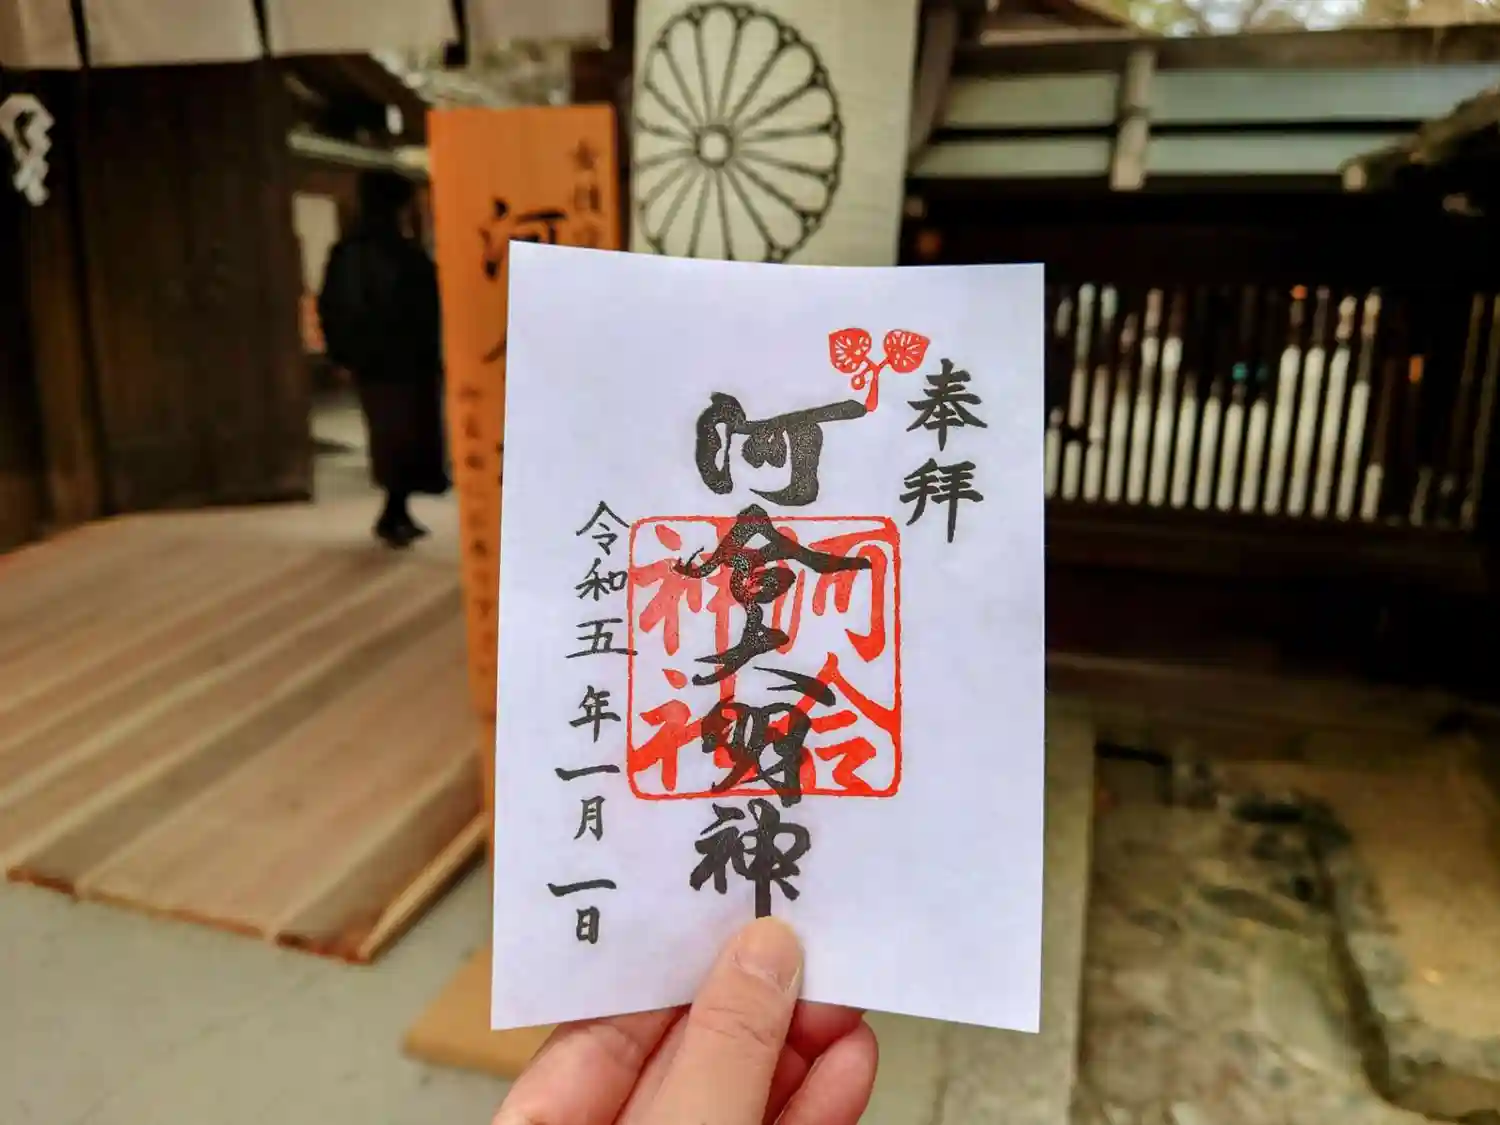 奉拝
河合大明神
河合
神社
令和五年一月一日
河